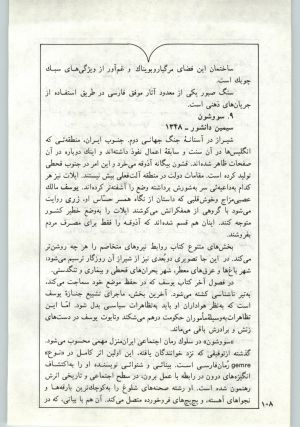 ساختمان این فضای مرگباروبویناك و غم‌آور از ویژگی‌های سبك
چوبك است.
سنگ صبور یکی از معدود آثار موفق فارسی در طریق استفاده از
جریان‌های ذهنی است.
۹. سووشون
سیمین دانشور ـ ۱۳۴۸
شیراز در آستانهٔ جنگ جهانی دوم. جنوب ایران، منطقه‌تی که
انگلیس‌ها در آن سنت و سابقهٔ اعمال نفوذ داشته‌اند و اینك دوباره در آن
صفحات ظاهر شده‌اند. قشون بیگانه آذوقه می‌خرد و این امر در جنوب قحطی
تولید کرده است. مقامات دولت در منطقه آلت‌فعلی بیش نیستند. ایلات نیز هر
کدام به‌داعیه‌ئی سر به‌شورش برداشته وضع را آشفته‌تر کرده‌اند. یوسف مالك
عصبی‌مزاج وخوش‌قلبی که داستان از نگاه همسر حساس او، زری روایت
می‌شود با گروهی از همفکرانش می‌کوشند ایلات را به‌وضع خطیر کشور
متوجه کنند. اینان هم قسم شده‌اند که آذوقه را فقط برای مصرف مردم
بفروشند.
بخش‌های متنوع کتاب روابط نیروهای متخاصم را هر چه روشن‌تر
می‌کند. در این جا تصویری دوبُعدی نیز از شیراز آن روزگار ترسیم می‌شود،
شهر باغ‌ها و عرق‌های معطر، شهر بحران‌های قحطی و بیماری و تنگدستی.
در فصول آخر کتاب یوسف که در حفظ موضع خود سماجت می‌کند،
به‌تیر ناشناسی کشته می‌شود. آخرین بخش، ماجرای تشییع جنازهٔ یوسف
است که به‌نظر هواداران او باید به‌تظاهرات سیاسی بدل شود. اما این
تظاهرات به‌وسیلهٔمأموران حکومت درهم می‌شکند وتابوت یوسف در دست‌های
زنش و برادرش باقی می‌ماند.
«سووشون» در سلوك رمان اجتماعی ایران‌منزل مهمی محسوب می‌شود.
گذشته ازتوفیقی که نزد خوانندگان یافته، این اولین اثر کامل در «نوع»
gemre رمان‌فارسی است. بینائی و شنوائی نویسنده او را به‌اکتشاف
انگیزه‌های درون در رابطه با عمل برون، در سطحی اجتماعی و تاریخی اثرش
رهنمون شده است. او رشته صحنه‌های شلوغ را به‌کوچك‌ترین بارقه‌ها و
نجواهای آهسته، و پچپچ‌های فروخورده متصل می‌کند. آن هم با بیانی، که در
۱۰۸